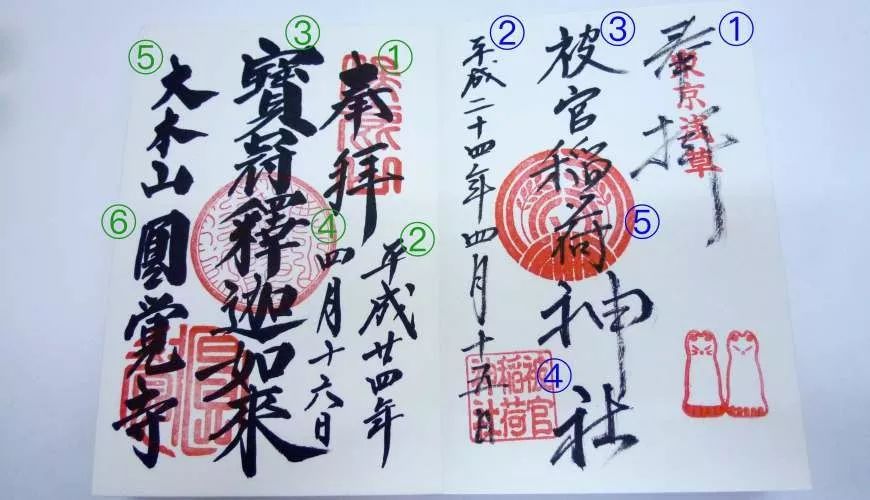 ①
奉拝
東京浅草
③
被官稲荷神社
⑤
②
平成二十四年四月十五日
④
被官
稲荷
神社
①
奉拝
②
平成廿四年
四月十六日
③
寶冠釋迦如來
④
⑤
大本山
⑥
圓覚寺